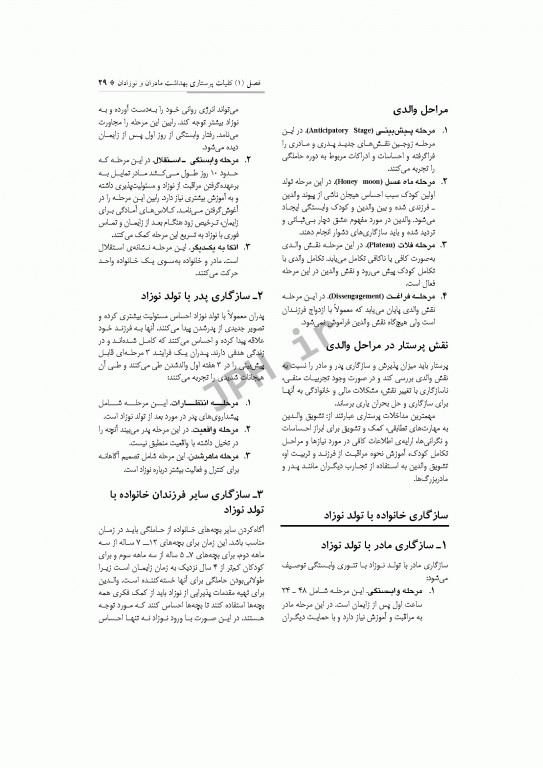 فصل (۱) کلیات پرستاری بهداشت مادران و نوزادان * ۲۹
مراحل والدی
۱. مرحله پیش‌بینی (Anticipatory Stage). در این
مرحله زوجین نقش‌های جدید پدری و مادری را
فراگرفته و احساسات و ادراکات مربوط به دوره حاملگی
را تجربه می‌کنند.
۲. مرحله ماه عسل (Honey moon). در این مرحله تولد
اولین کودک سبب احساس هیجان ناشی از پیوند والدین
ـ فرزندی شده و بین والدین و کودک وابستگی ایجاد
می‌شود. والدین در مورد مفهوم عشق دچار بی‌ثباتی و
تردید شده و باید سازگاری‌های دشوار انجام دهند.
۳. مرحله فلات (Plateau). در این مرحله نقش والدی
به‌صورت کافی یا ناکافی تکامل می‌یابد. تکامل والدی با
تکامل کودک پیش می‌رود و نقش والدین در این مرحله
فعال است.
۴. مرحله فراغت (Dissengagement). در این مرحله
نقش والدی پایان می‌یابد که معمولاً با ازدواج فرزندان
است ولی هیچ‌گاه نقش والدین فراموش نمی‌شود.
نقش پرستار در مراحل والدی
پرستار باید میزان پذیرش و سازگاری پدر و مادر را نسبت به
نقش والدی بررسی کند و در صورت وجود تجربیات منفی،
ناسازگاری با تغییر نقش، مشکلات مالی و خانوادگی به آنها
برای سازگاری و حل بحران یاری برساند.
مهمترین مداخلات پرستاری عبارتند از: تشویق والدین
به مهارت‌های تطابقی، کمک و تشویق برای ابراز احساسات
و نگرانی‌ها، ارایه‌ی اطلاعات کافی در مورد نیازها و مراحل
تکامل کودک، آموزش نحوه مراقبت از فرزند و تربیت او،
تشویق والدین به استفاده از تجارب دیگران مانند پدر و
مادربزرگ‌ها.
سازگاری خانواده با تولد نوزاد
۱ـ سازگاری مادر با تولد نوزاد
سازگاری مادر با تولد نوزاد با تئوری وابستگی توصیف
می‌شود:
۱. مرحله وابستگی. این مرحله شامل ۴۸ ـ ۲۴
ساعت اول پس از زایمان است. در این مرحله مادر
به مراقبت و آموزش نیاز دارد و با حمایت دیگران
می‌تواند انرژی روانی خود را به‌دست آورده و به
نوزاد بیشتر توجه کند. رابین این مرحله را مجاورت
می‌نامد. رفتار وابستگی از روز اول پس از زایمان
دیده می‌شود.
۲. مرحله وابستگی ـ استقلال. در این مرحله که
حدود ۱۰ روز طول می‌کشد مادر تمایل به
برعهده‌گرفتن مراقبت از نوزاد و مسئولیت‌پذیری داشته
و به آموزش بیشتری نیاز دارد. رابین این مرحله را در
آغوش‌گرفتن می‌نامد. کلاس‌های آمادگی برای
زایمان، ترخیص زود هنگام بعد از زایمان و تماس
فوری با نوزاد به تسریع این مرحله کمک می‌کنند.
۳. اتکا به یکدیگر. این مرحله نشانه‌ی استقلال
است. مادر و خانواده به‌سوی یک خانواده واحد
حرکت می‌کنند.
۲ـ سازگاری پدر با تولد نوزاد
پدران معمولاً با تولد نوزاد احساس مسئولیت بیشتری کرده و
تصویر جدیدی از پدرشدن پیدا می‌کنند. آنها به فرزند خود
علاقه پیدا کرده و احساس می‌کنند که کامل شده‌اند و در
زندگی هدفی دارند. پدران یک فرایند ۳ مرحله‌ای قابل
پیش‌بینی را در ۳ هفته اول والدشدن طی می‌کنند و طی آن
هیجانات شدیدی را تجربه می‌کنند:
۱. مرحله انتظارات. این مرحله شامل
پیشداروی‌های پدر در مورد بعد از تولد نوزاد است.
۲. مرحله واقعیت. در این مرحله پدر می‌بیند آنچه را
در تخیل داشته با واقعیت منطبق نیست.
۳. مرحله ماهرشدن. این مرحله شامل تصمیم آگاهانه
برای کنترل و فعالیت بیشتر درباره نوزاد است.
۳ـ سازگاری سایر فرزندان خانواده با
تولد نوزاد
آگاه‌کردن سایر بچه‌های خانواده از حاملگی باید در زمان
مناسب باشد. این زمان برای بچه‌های ۱۲ـ ۷ ساله از سه
ماهه دوم، برای بچه‌های ۷ـ ۵ ساله از سه ماهه سوم و برای
کودکان کم‌تر از ۴ سال نزدیک به زمان زایمان است زیرا
طولانی‌بودن حاملگی برای آنها خسته‌کننده است. والدین
برای تهیه مقدمات پذیرایی از نوزاد باید از کمک فکری همه
بچه‌ها استفاده کنند تا بچه‌ها احساس کنند که مورد توجه
هستند. در این صورت با ورود نوزاد نه تنها احساس